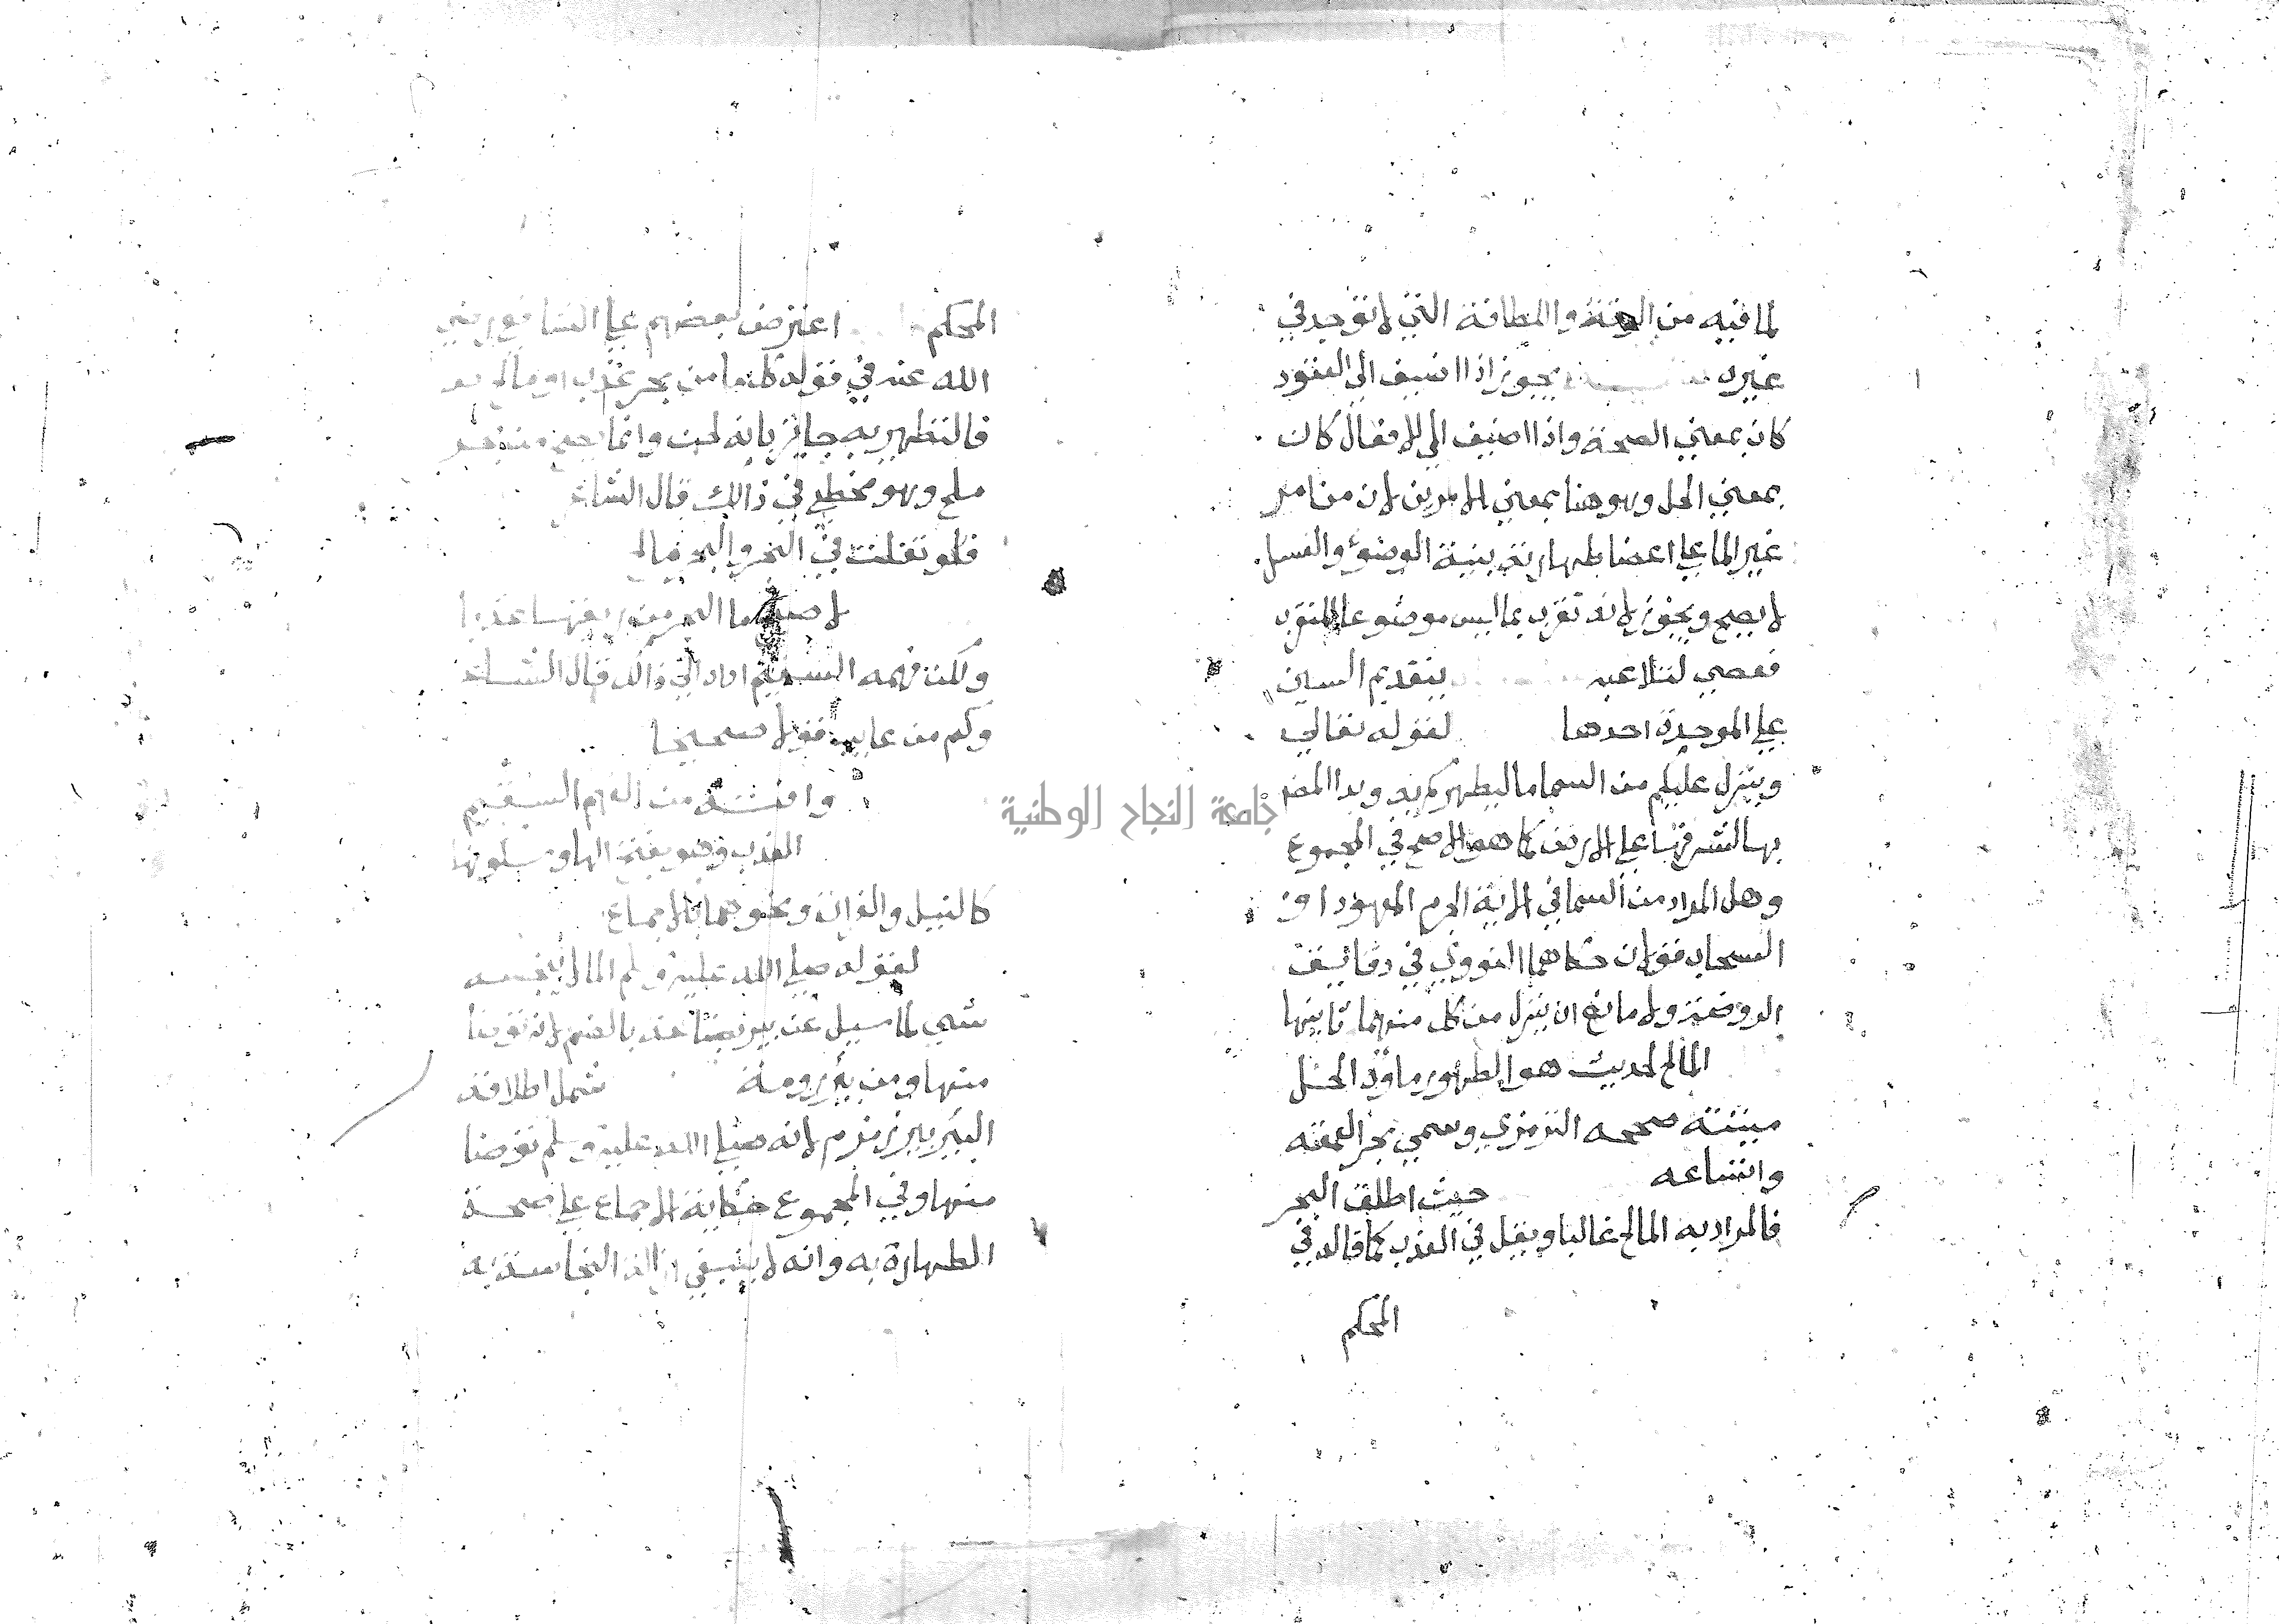 لما فيه من الرقة واللطافة التي لا توجد في
غيره يجوز اذا اضيف الي العقود
كان بمعني الصحة واذا اضيف الي الافعال كان
بمعني الحل وهو هنا بمعني الامرين لان من امر
غير الما علي اعضا طهارته بنية الوضوء والغسل
لا يصح ويجوز لانه تقرب بما ليس موضوعا للتقرب
فعصي لتلاعبه بتقديم السين
علي الموحدة احدها لقوله تعالي
وينزل عليكم من السما ما ليطهركم به وبدا المصـ
بها لشرفها علي الارض كما هو الاصح في المجموع
وهل المراد من السما في الاية الجرم المعهود او
السحاب قولان حكاهما النووي في دقايق
الروضة ولا مانع ان ينزل من كل منهما ثانيها
المالح لحديث هو الطهور ماؤه الحل
ميتته صححه الترمذي وسمي بحرا لعمقه
واتساعه حيث اطلق البحر
فالمراد به المالح غالبا ويقل في العذب كما قاله في
المحكم
المحكم اعترض بعضهم علي الشافعي رضي
الله عنه في قوله كل ما من بحر عذب او مالح
فالتطهير به جايز بانه لحن وانما يصح من بحر
ملح وهو مخطي في ذالك قال الشاعر
فلو تفلت في البحر والبحر مالح
لاصبح ما البحر من ريقها عذبا
ولكن فهمه السقيم اداه الي ذالك قال الشاعر
وكم من عايب قولا صحيحا
وافته من الفهم السقيم
العذب وهو بفتح الها وسكونها
كالنيل والفرات ونحوهما بالاجماع
لقوله صلي الله عليه وسلم الما لا ينجسه
شي لما سيل عن بير بضاعة بالضم لانه توضا
منها ومن بير رومة شمل اطلاقه
البير بير زمزم لانه صلي الله عليه وسلم توضا
منها وفي المجموع حكاية الاجماع علي صحة
الطهارة به وانه لا ينبغي ازالة النجاسة به
جامعة النجاح الوطنية